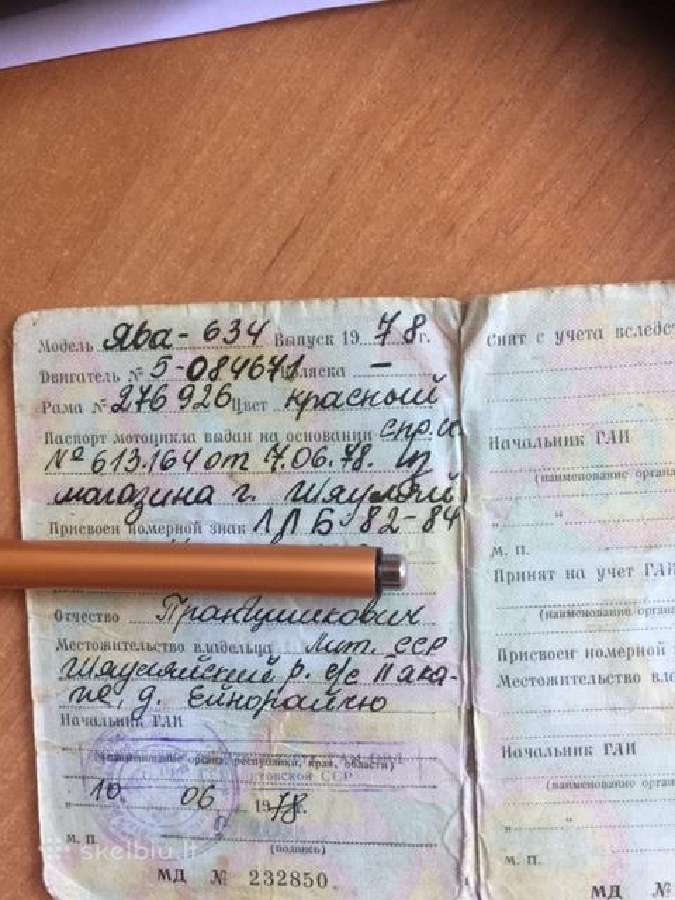 Модель Ява-634 Выпуск 1978г.
Двигатель № 5-084671 Коляска —
Рама № 276926 Цвет красный
Паспорт мотоцикла выдан на основании спр. и
№ 613.164 от 7.06.78. из
магазина г. Шяуляй
Присвоен номерной знак ЛЛБ 82-84
Отчество
Местожительство владельца Лит. ССР
Шяуляйский р. с/с Пака-
пе, д. Ейнорайчю
Начальник ГАИ
(наименование органа, республики, края, области)
товской ССР
„10. 06 1978г.
М. П.
(подпись)
МД № 232850
skelbiu.lt
Снят с учета вследст
Начальник ГАИ
(наименование органа
„ “
М. П.
Принят на учет ГАИ
(наименование орган
Присвоен номерной
Местожительство вла
Начальник ГАИ
(наименование орган
„ “
М. П.
МД №